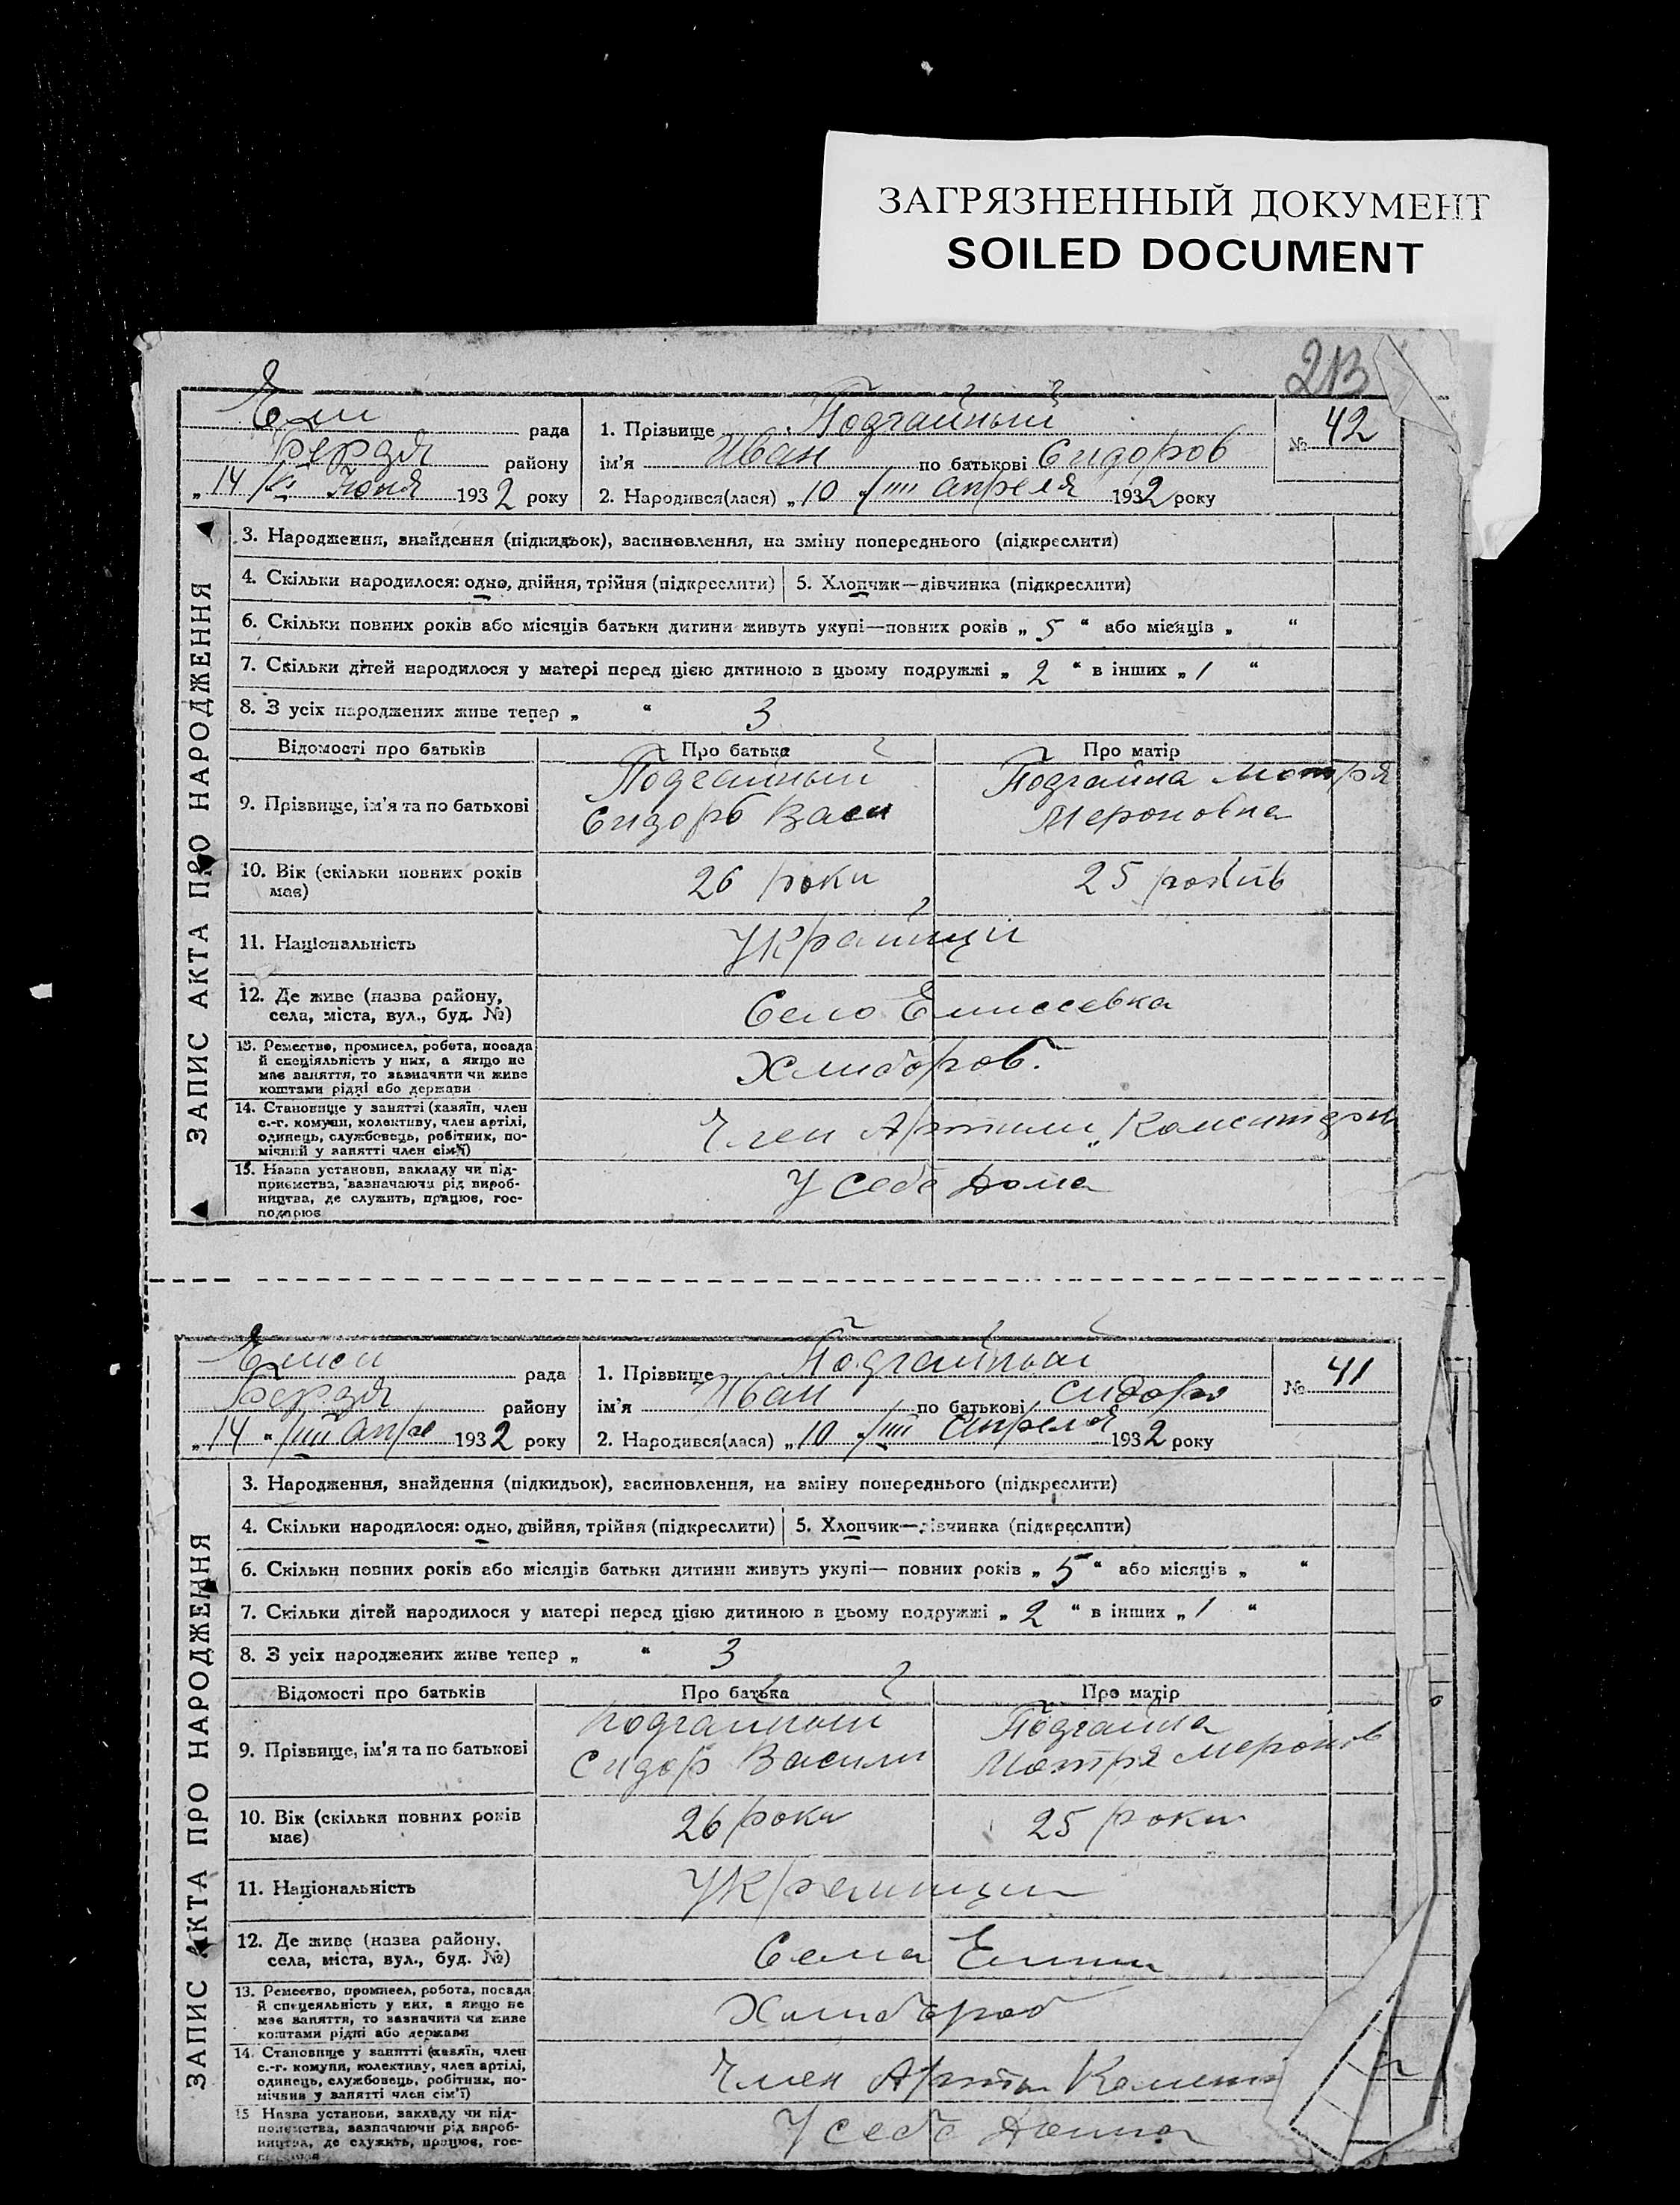 ЗАГРЯЗНЕННЫЙ ДОКУМЕНТ
SOILED DOCUMENT
213
рада
Бердя району
„14 Юня 1932 року
1. Прізвище Подгайный
ім'я Иван по батькові Сидоров
2. Народився(лася) „10 /IIII апреля 1932 року
№ 42
ЗАПИС АКТА ПРО НАРОДЖЕННЯ
3. Народження, знайдення (підкидьок), васиновлення, на зміну попереднього (підкреслити)
4. Скільки народилося: одно, двійня, трійня (підкреслити) 5. Хлопчик—дівчинка (підкреслити)
6. Скільки повних років або місяців батьки дитини живуть укупі—повних років „ 5 “ або місяців „ “
7. Скільки дітей народилося у матері перед цією дитиною в цьому подружжі „ 2 “ в інших „ 1 “
8. З усіх народжених живе тепер „ “ 3
Відомості про батьків Про батька Про матір
9. Прізвище, ім'я та по батькові
Подгайный
Сидорь Васи
Подгайна Мотря
Мероновна
10. Вік (скільки повних років
має)
26 роки 25 рокив
11. Національність Украинци
12. Де живе (назва району,
села, міста, вул., буд. №)
Село Елисеевка
13. Ремество, промисел, робота, посада
й спеціяльність у них, а якщо не
має заняття, то зазначити чи живе
коштами рідні або держави
Хлибороб.
14. Становище у занятті (хазяїн, член
с.-г. комуни, колективу, член артілі,
одинець, службовець, робітник, по-
мічний у занятті член сім'ї)
Член Артили
15. Назва установи, закладу чи під-
приємства, зазначаючи рід вироб-
ництва, де служить, працює, гос-
подарює
У себе Дома
рада
Бердя району
„14 “ /IIII апре 1932 року
1. Прізвище Подгайный
ім'я Иван по батькові Сидоро
2. Народився(лася) „10 /IIII Апреля 1932 року
№ 41
ЗАПИС АКТА ПРО НАРОДЖЕННЯ
3. Народження, знайдення (підкидьок), васиновлення, на зміну попереднього (підкреслити)
4. Скільки народилося: одно, двійня, трійня (підкреслити) 5. Хлопчик—дівчинка (підкреслити)
6. Скільки повних років або місяців батьки дитини живуть укупі— повних років „ 5 “ або місяців „ “
7. Скільки дітей народилося у матері перед цією дитиною в цьому подружжі „ 2 “ в інших „ 1 “
8. З усіх народжених живе тепер „ “ 3
Відомості про батьків Про батька Про матір
9. Прізвище, ім'я та по батькові
Подгайный
Сидор Васили
Подгайна
Мотря Меронов
10. Вік (скільки повних років
має)
26 роки 25 роки
11. Національність Украинци
12. Де живе (назва району,
села, міста, вул., буд. №)
Села
13. Ремество, промисел, робота, посада
й спецеяльність у них, а якщо не
має заняття, то зазначити чи живе
коштами рідні або держави
Хлибороб
14. Становище у занятті (хазяїн, член
с.-г. комуни, колективу, член артілі,
одинець, службовець, робітник, по-
мічний у занятті член сім'ї)
Член
15 Назва установи, закладу чи під-
приємства, зазначаючи рід вироб-
ництва, де служить, працює, гос-
У себе Дома